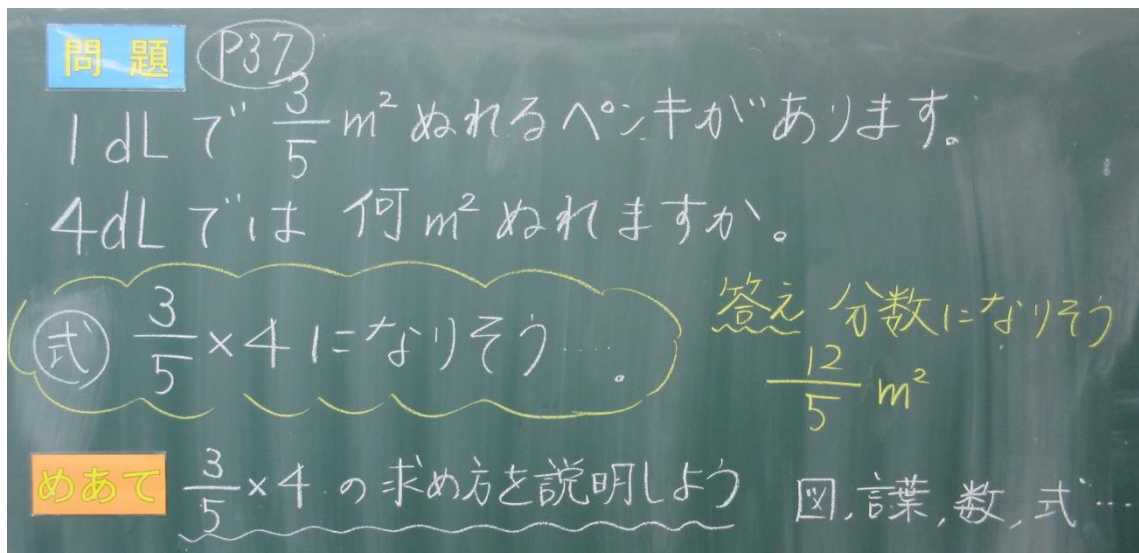 問題 P37
1dLで3/5m²ぬれるペンキがあります。
4dLでは何m²ぬれますか。
式 3/5×4になりそう……。
答え 分数になりそう
12/5 m²
めあて 3/5×4の求め方を説明しよう 図,言葉,数,式…